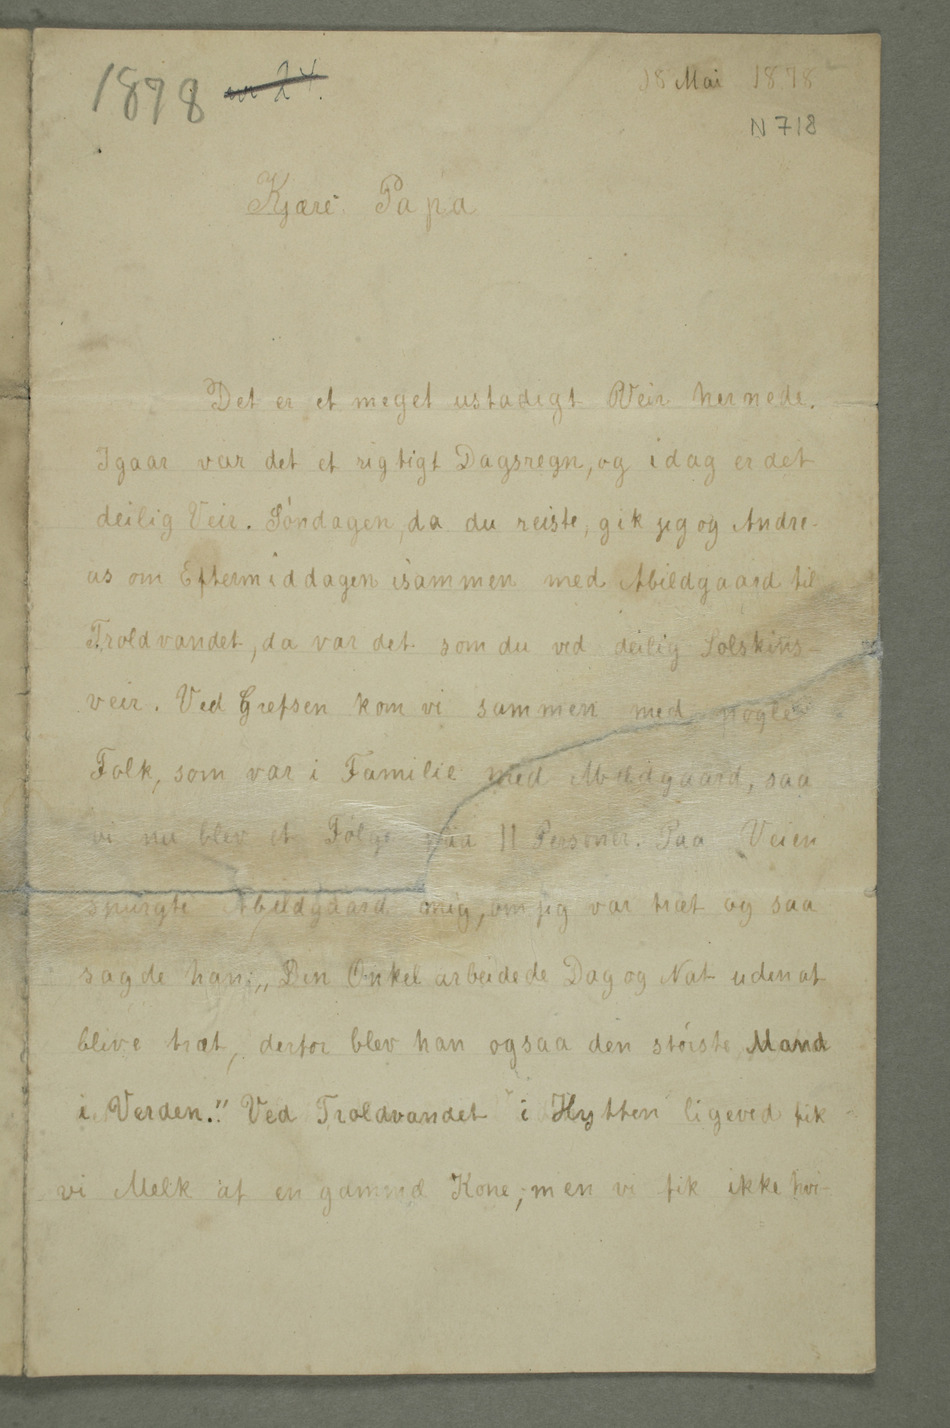 1878 24.
18 Mai 1878
N 718
Kjære Papa
Det er et meget ustadigt Veir hernede.
Igaar var det et rigtigt Dagsregn, og idag er det
deilig Veir. Söndagen, da du reiste, gik jeg og Andre-
as om Eftermiddagen isammen med Abildgaard til
Troldvandet, da var det som du ved deilig Solskins-
veir. Ved Grefsen kom vi sammen med nogle
Folk, som var i Familie med Abildgaard, saa
vi nu blev et Følge paa 11 Personer. Paa Veien
spurgte Abildgaard mig, om jeg var træt og saa
sagde han: „Din Onkel arbeidede Dag og Nat uden at
blive træt, derfor blev han ogsaa den störste Mand
i Verden." Ved Troldvandet i Hytten ligeved fik
vi Melk af en gammel Kone, men vi fik ikke hvi-